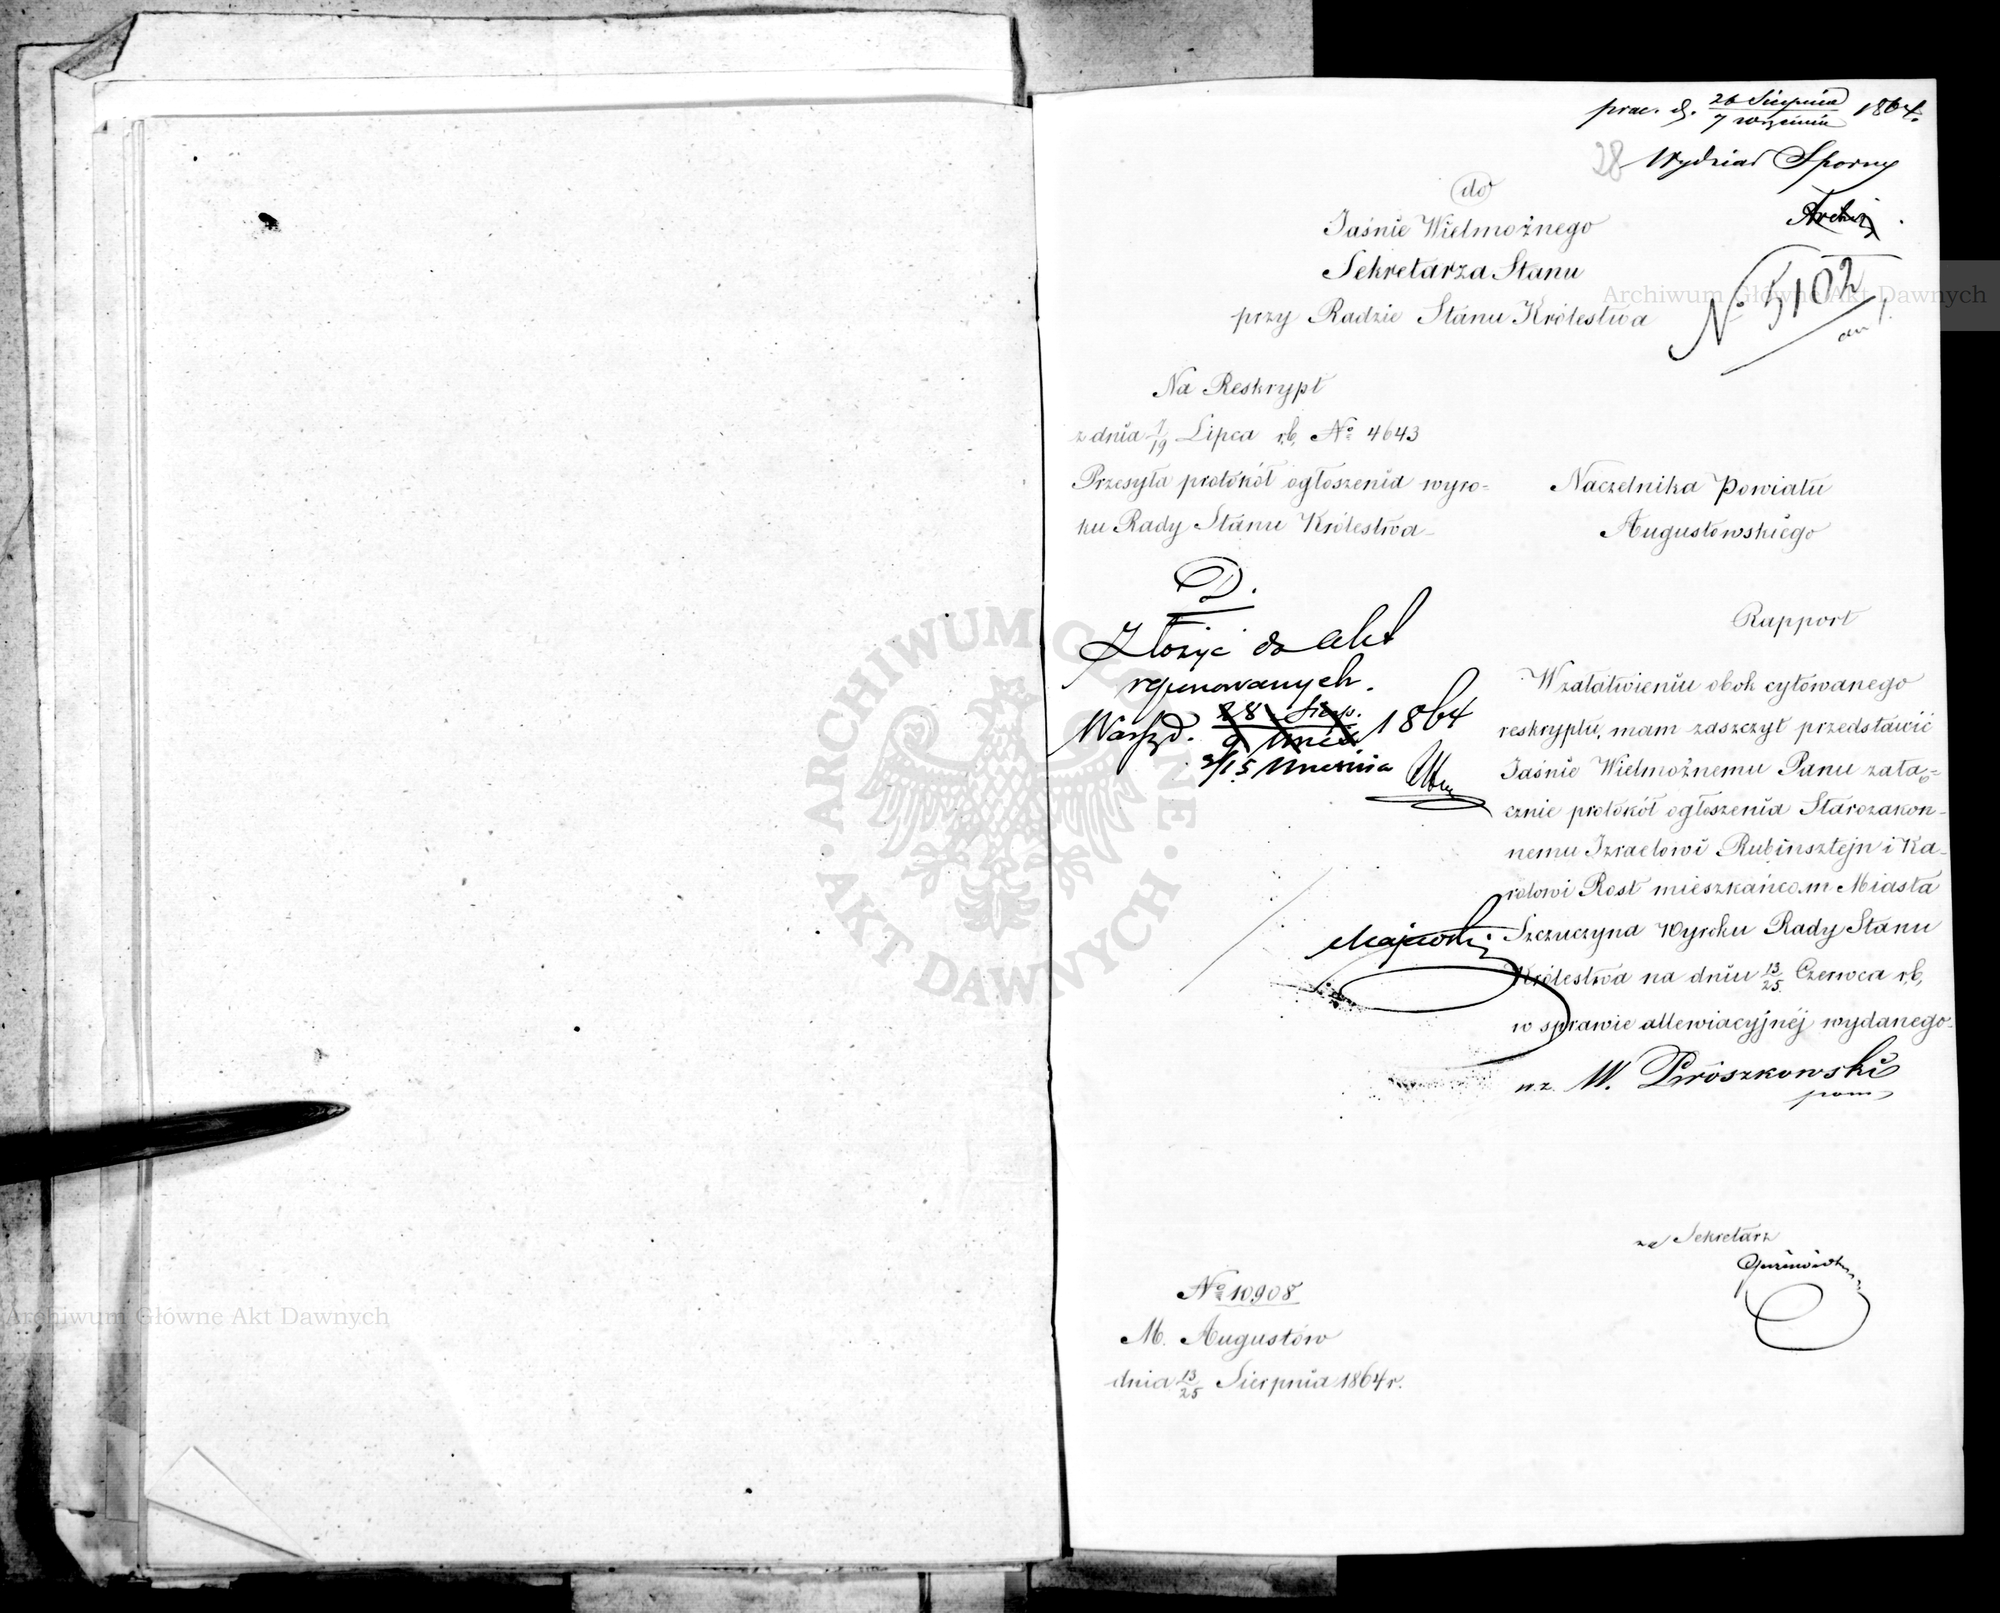 prac. d. 26 Sierpnia / 7 września 1864.
28 Wydział Sporny
do
Jaśnie Wielmożnego
Sekretarza Stanu
przy Radzie Stanu Królestwa
N° 5102
Na Reskrypt
z dnia 7/19 Lipca r.b. N° 4643
Przesyła protokół ogłoszenia wyro-
ku Rady Stanu Królestwa
Naczelnika Powiatu
Augustowskiego
Rapport
D.
Złożyć do akt
reponowanych.
Warsz. d. 28 Sierp. / 9 Wrześ. 1864
3/15 Września
W załatwieniu obok cytowanego
reskryptu, mam zaszczyt przedstawić
Jaśnie Wielmożnemu Panu załą-
cznie protokół ogłoszenia Starozakon-
nemu Izraelowi Rubinsztejn i Ka-
rolowi Rost mieszkańcom Miasta
Szczuczyna Wyroku Rady Stanu
Królestwa na dniu 13/25 Czerwca r.b.
w sprawie allewiacyjnéj wydanego
Majewski
wz. W. Piroszkowski
pom
za Sekretarz
N° 10908
M. Augustów
dnia 13/25 Sierpnia 1864 r.
ARCHIWUM GŁÓWNE AKT DAWNYCH
Archiwum Główne Akt Dawnych
Archiwum Główne Akt Dawnych